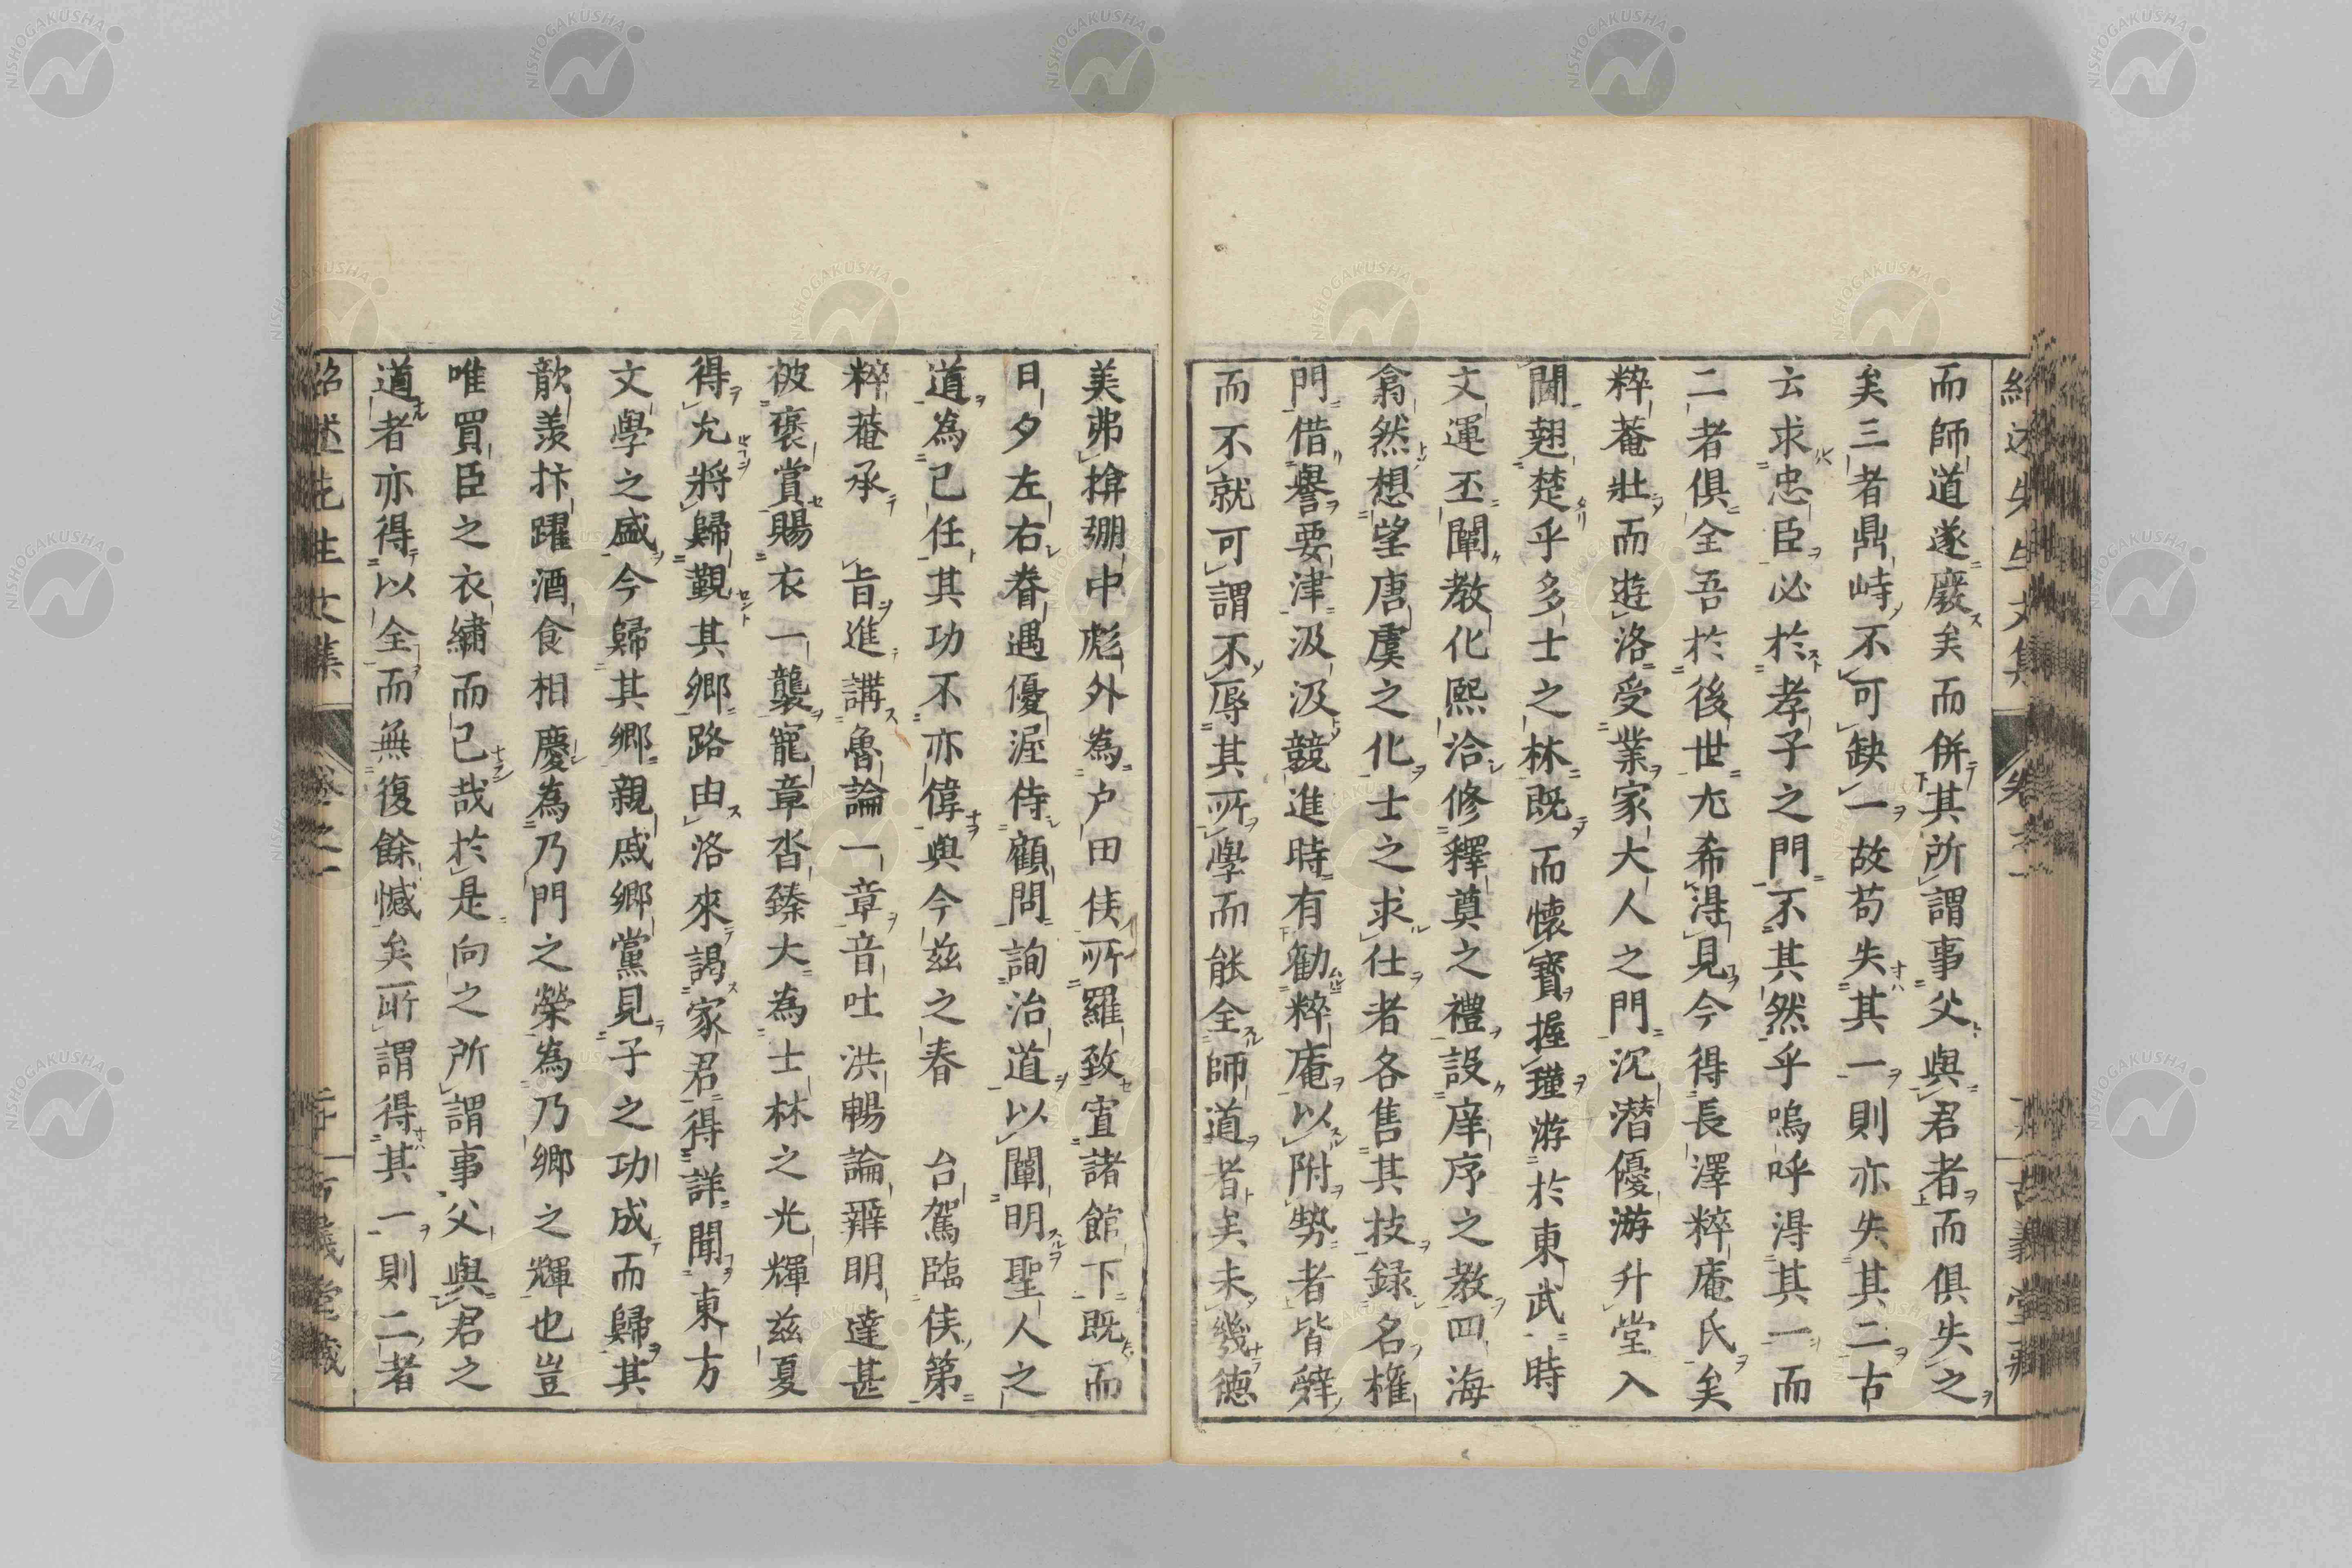 而師道遂廢矣而併其所謂事父與君者而俱失之
矣三者鼎峙不可缺一故苟失其一則亦失其二古
云求忠臣必於孝子之門不其然乎嗚呼得其一而
二者俱全吾於後世尤希得見今得長澤粹庵氏矣
粹菴壯而遊洛受業家大人之門沉潜優游升堂入
閫翹楚乎多士之林既而懷寶握瑾游於東武時
文運丕闡教化熙洽修釋奠之禮設庠序之教四海
翕然想望唐虞之化士之求仕者各售其技録名權
門借譽要津汲汲競進時有勸粹庵以附勢者皆辤
而不就可謂不辱其所學而能全師道者矣未幾德
美弗揜弸中彪外為戸田侯所羅致寘諸館下既而
日夕左右眷遇優渥侍顧問詢治道以闡明聖人之
道為己任其功不亦偉與今兹之春　台駕臨侯第
粹菴承　旨進講魯論一章音吐洪暢論辨明達甚
被褒賞賜衣一襲寵章沓臻大為士林之光輝兹夏
得允將歸覲其鄉路由洛來謁家君得詳聞東方
文學之盛今歸其鄉親戚鄉黨見子之功成而歸其
歆羨抃躍酒食相慶為乃門之榮為乃鄉之輝也豈
唯買臣之衣繡而已哉於是向之所謂事父與君之
道者亦得以全而無復餘憾矣所謂得其一則二者
紹述先生文集　卷之一　古義堂藏